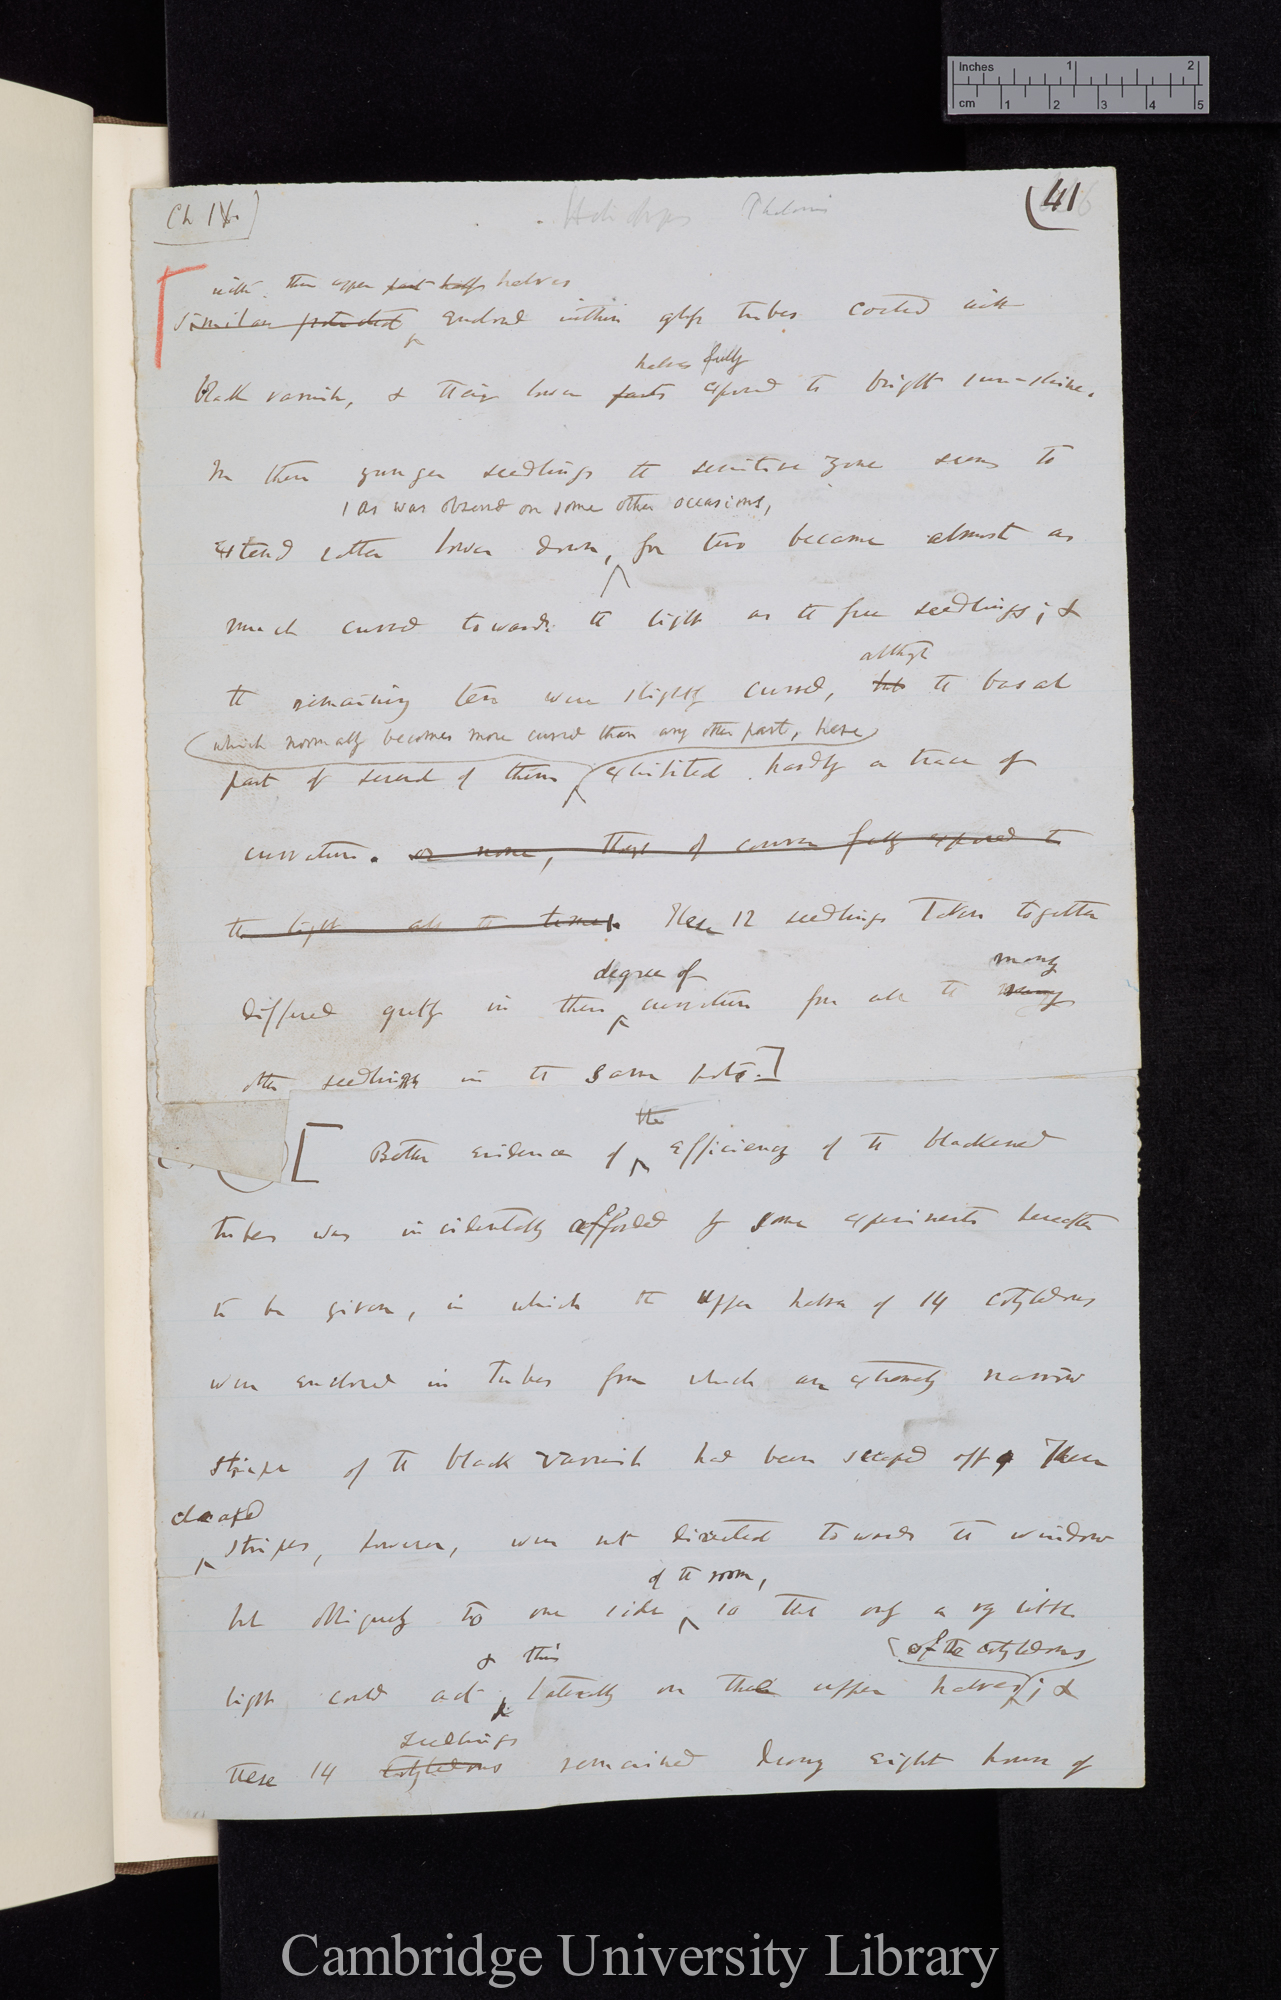 Inches 1 2
cm 1 2 3 4 5
Ch IX
Phalaris
41
with their upper part halfs halves
Similar protected enclosed within glass tubes coated with
halves fully
black varnish, & their lower parts exposed to bright sun-shine.
In these younger seedlings the sensitive zone seems to
, as was observed on some other occasions,
extend rather lower down, for two became almost as
much curved towards the light as the free seedlings; &
although
the remaining ten were slightly curved, but the basal
which normally becomes more curved than any other part, here
part of several of them exhibited hardly a trace of
curvature. or none, though of course fully exposed to
the light all the time. These 12 seedlings taken together
degree of many
differed greatly in their curvature from all the many
other seedlings in the same pots.]
the
[ Better evidence of efficiency of the blackened
tubes was incidentally afforded by some experiments hereafter
to be given, in which the upper halves of 14 cotyledons
were enclosed in tubes from which an extremely narrow
stripe of the black varnish had been scraped off. These
cleared
stripes, however, were not directed towards the window
of the room,
but obliquely to one side so that only a very little
& this of the cotyledons
light could act laterally on the upper halves; &
seedlings
these 14 cotyledons remained during eight hours of
Cambridge University Library